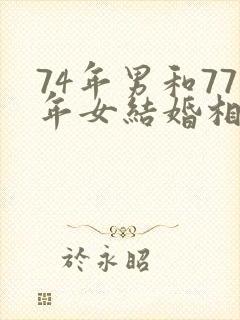 74年男和77
年女結婚相
於永昭